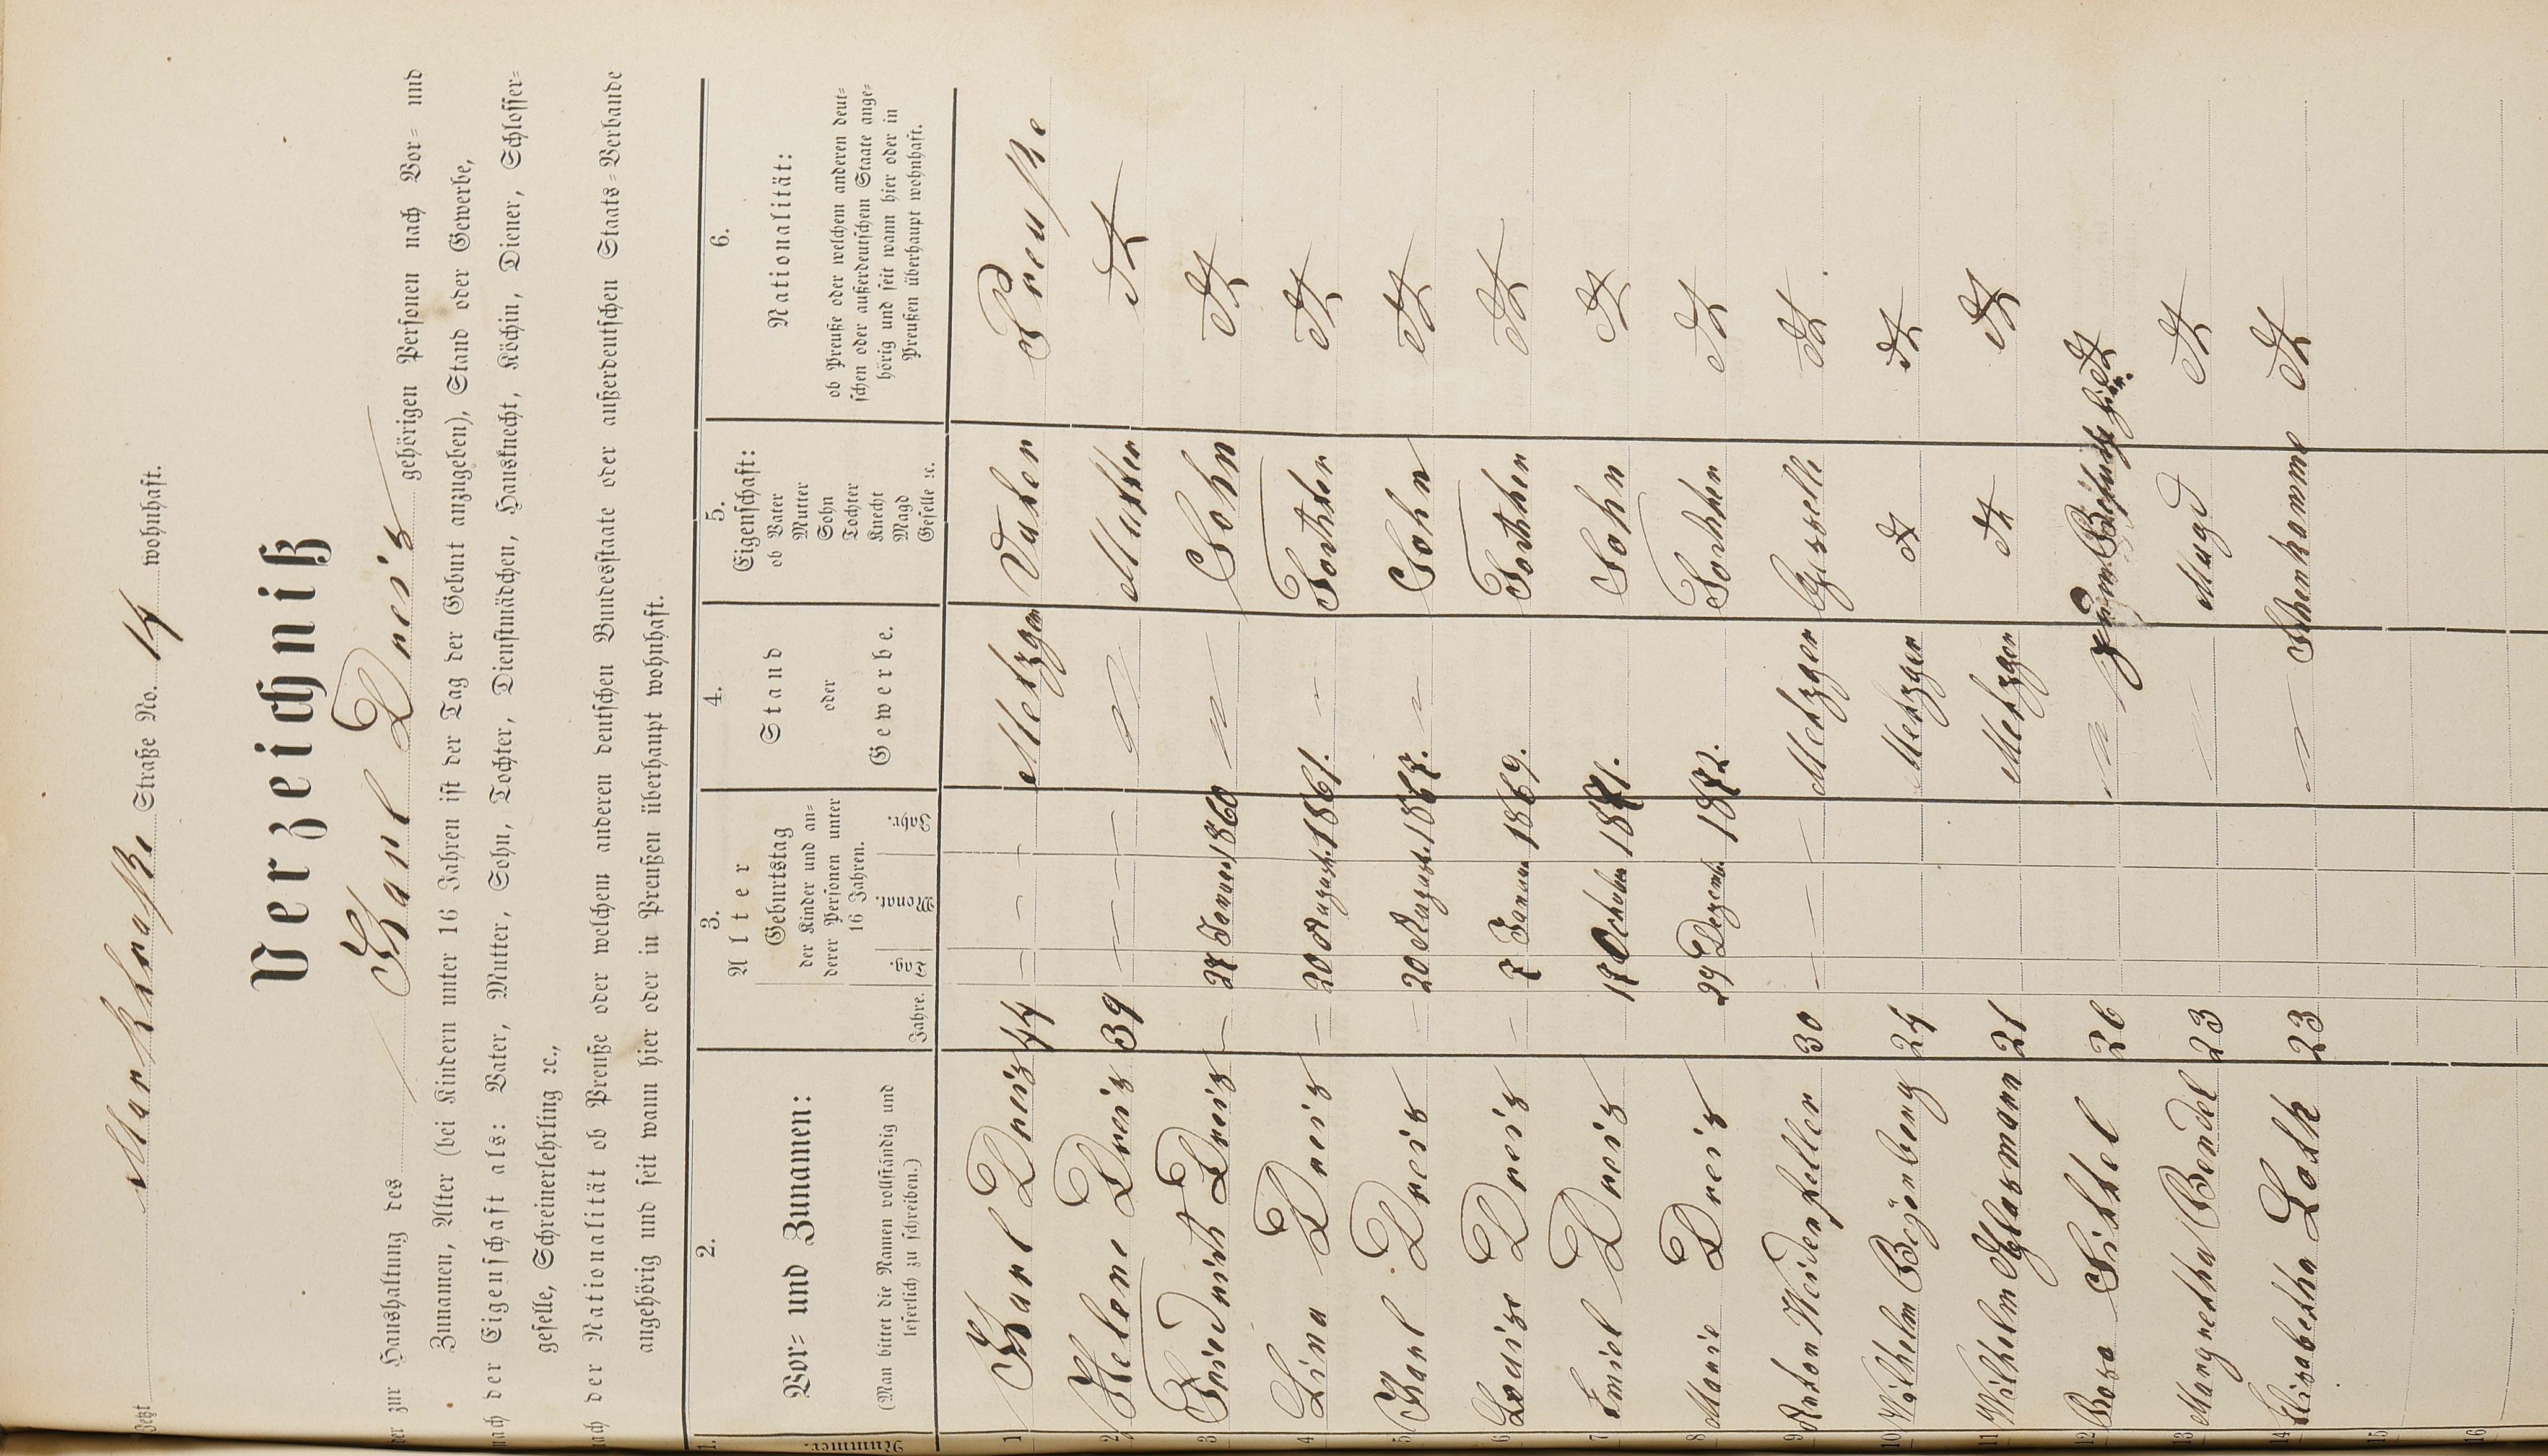 Jetzt Marktstraße Straße No. 14 wohnhaft.
Verzeichniß
der zur Haushaltung des Karl Dreis gehörigen Personen nach Vor- und
Zunamen, Alter (bei Kindern unter 16 Jahren ist der Tag der Geburt anzugeben), Stand oder Gewerbe,
nach der Eigenschaft als: Vater, Mutter, Sohn, Tochter, Dienstmädchen, Hausknecht, Köchin, Diener, Schlosser-
geselle, Schreinerlehrling ꝛc.,
nach der Nationalität ob Preuße oder welchem anderen deutschen Bundesstaate oder außerdeutschen Staats-Verbande
angehörig und seit wann hier oder in Preußen überhaupt wohnhaft.
1. 2. 3. 4. 5. 6.
Nummer.
Vor- und Zunamen:
(Man bittet die Namen vollständig und
leserlich zu schreiben.)
Alter
Jahre.
Geburtstag
der Kinder und an-
derer Personen unter
16 Jahren.
Tag. Monat. Jahr.
Stand
oder
Gewerbe.
Eigenschaft:
ob Vater
Mutter
Sohn
Tochter
Knecht
Magd
Geselle ꝛc.
Nationalität:
ob Preuße oder welchem anderen deut-
schen oder außerdeutschem Staate ange-
hörig und seit wann hier oder in
Preußen überhaupt wohnhaft.
1 Karl Dreis 44 – – – Metzger Vater Preuße
2 Helene Dreis 39 – – – " Mutter dt
3 Friedrich Dreis – 27 Januar 1860 " Sohn dt
4 Lina Dreis – 20 August 1861. " Tochter dt
5 Karl Dreis – 20 August 1867. " Sohn dt
6 Louise Dreis – 7 Januar 1869. Tochter dt
7 Emiel Dreis 17 October 1871. Sohn dt
8 Marie Dreis 29 Dezemb. 1872. Tochter dt
9 Anton Weidenfeller 30 – – – Metzger Geselle dt
10 Wilhelm 24 Metzger dt dt
11 Wilhelm Glasmann 21 Metzger dt dt
12 Rosa Sittel 26 " zum Besuch hier dt
13 Margretha Bendel 23 " Magd dt
14 Elisabetha 23 " Schenkamme dt
15
16